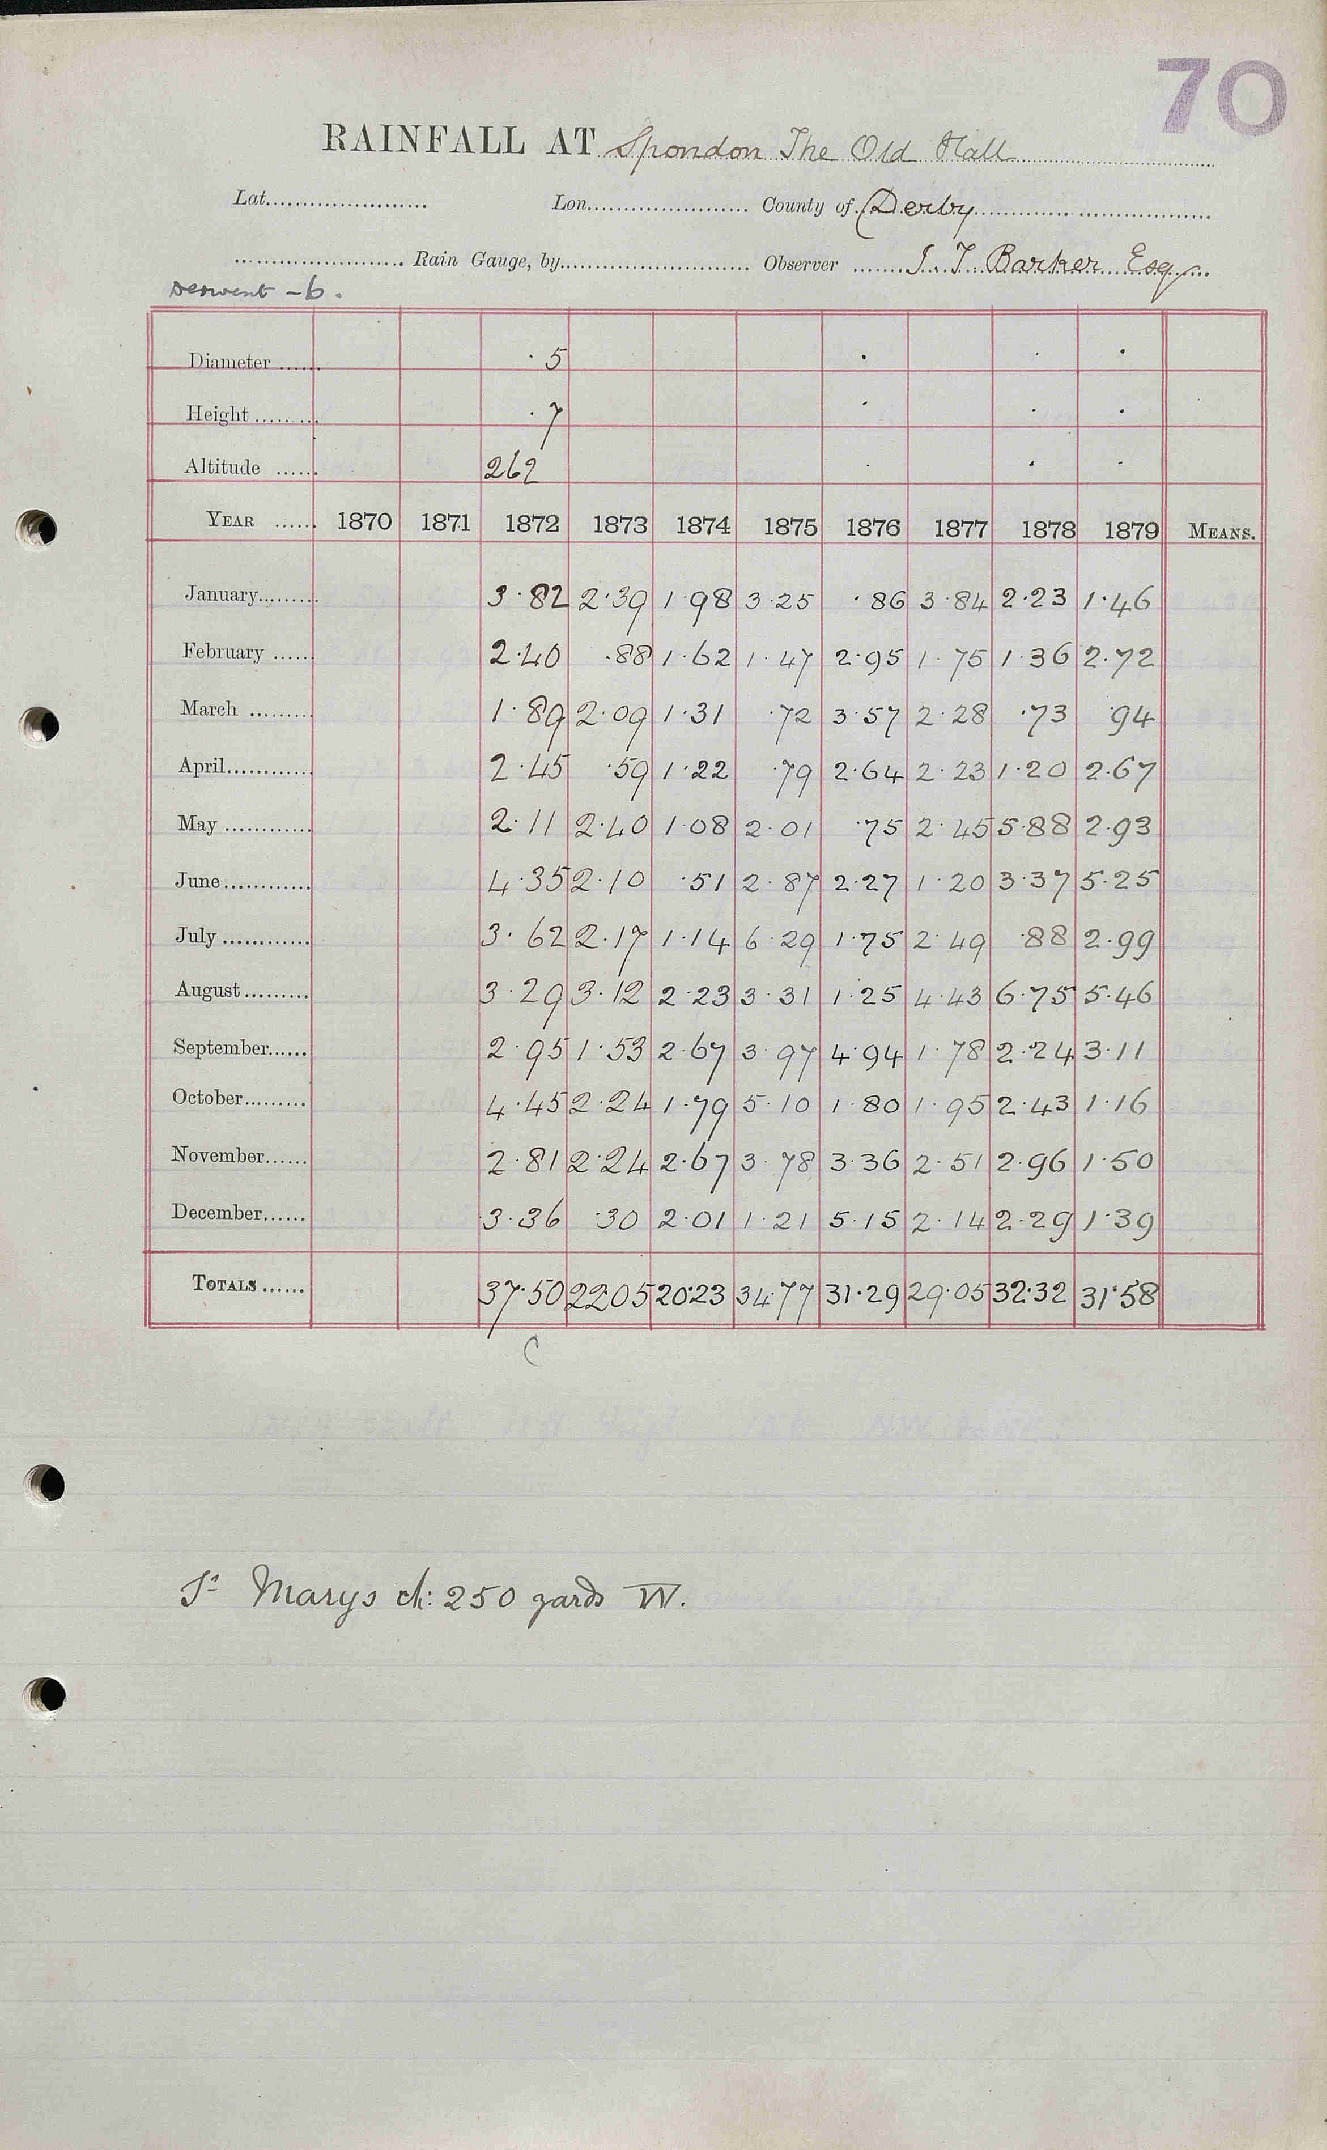 70
RAINFALL AT Spondon The Old Hall
Lat. Lon. County of Derby
Rain Gauge, by Observer J. T. Barker Esq
Derwent - b.
Diameter · 5
Height · 7
Altitude 262
YEAR 1870 1871 1872 1873 1874 1875 1876 1877 1878 1879 MEANS.
January 3·82 2·39 1·98 3·25 ·86 3·84 2·23 1·46
February 2·40 ·88 1·62 1·47 2·95 1·75 1·36 2·72
March 1·89 2·09 1·31 ·72 3·57 2·28 ·73 ·94
April 2·45 ·59 1·22 ·79 2·64 2·23 1·20 2·67
May 2·11 2·40 1·08 2·01 ·75 2·45 5·88 2·93
June 4·35 2·10 ·51 2·87 2·27 1·20 3·37 5·25
July 3·62 2·17 1·14 6·29 1·75 2·49 ·88 2·99
August 3·29 3·12 2·23 3·31 1·25 4·43 6·75 5·46
September 2·95 1·53 2·67 3·97 4·94 1·78 2·24 3·11
October 4·45 2·24 1·79 5·10 1·80 1·95 2·43 1·16
November 2·81 2·24 2·67 3·78 3·36 2·51 2·96 1·50
December 3·36 ·30 2·01 1·21 5·15 2·14 2·29 1·39
TOTALS 37·50 22·05 20·23 34·77 31·29 29·05 32·32 31·58
C
St Marys ch: 250 yards W.